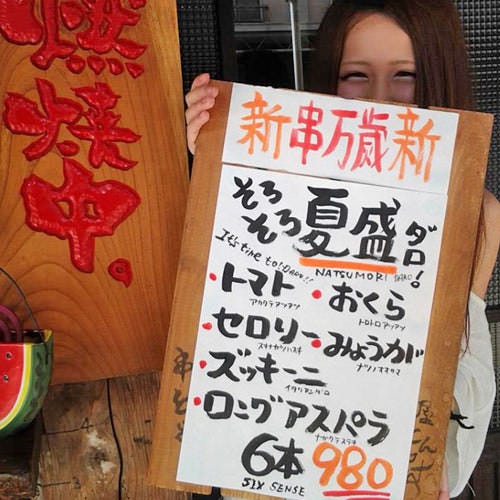 燻焼中。
新串万歳新
そろそろ夏盛ダロー!
It's time to! Daro!!
NATSUMORI DARO
・トマト
アカクテアツアツ
・おくら
トロトロアツアツ
・セロリー
・みょうがド
ナツノオマサマ
・ズッキーニ
イタリアンダロ
・ロングアスパラ
ナガクテステキ
6本 980
SIX SENSE